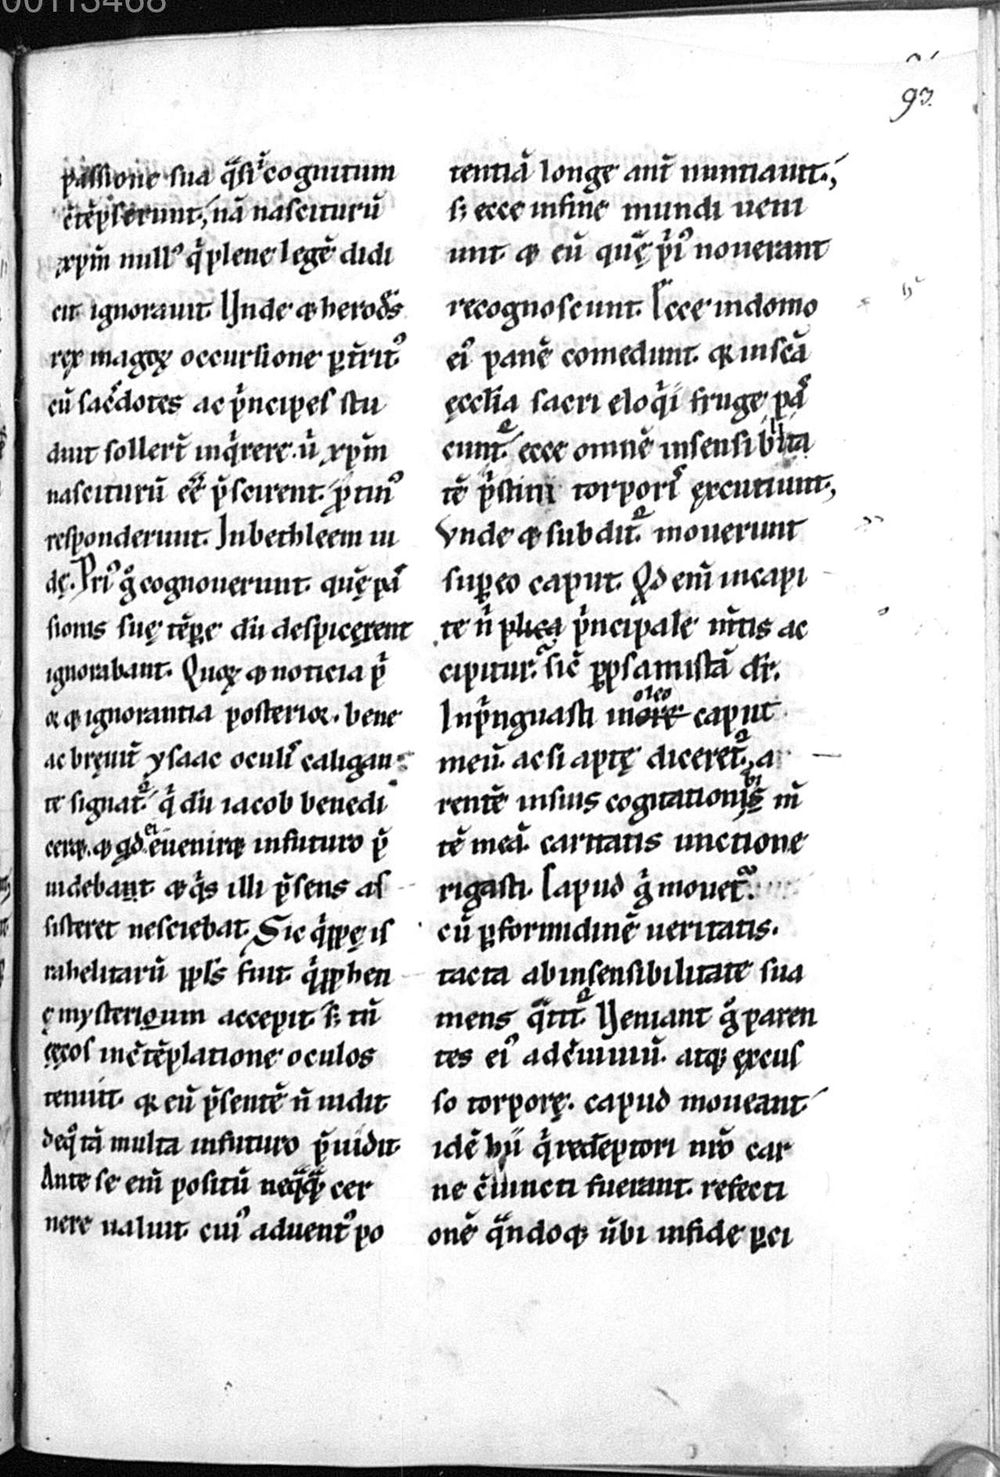 00113468
93.
passione sua q̈si cognitum
c̄tēpserunt, nā nasciturū
xp̄m null᾽ q̇ plene legē didi
cit ignorauit. Unde & herodēs
rex magoꝝ occursione ꝑt̄rit᾽
cū sac̄dotes ac p̍ncipes stu
duit sollert̄ inq̇rere. ū xp̄m
nasciturū eē p̄scirent. p̄tin᾽
responderunt. In bethleem iu
dę. Pri᾽ g̊ cognouerunt quę pa
sionis suę tēꝑe dū despicęrent
ignorabant. Quoꝝ & noticia p̍
or & ignorantia posterior. bene
ac bręuit̄ ysaac oculis caligan
te signat᷑. q̇ dū iacob benedi
ceret. & qđ ei eueniret in futuro p̄
uidebant & q̇s illi p̄sens as
sisteret nesciebat. Sic q̇ppę is
rahelitarū ppls fuit. q̇ pphen
ę mysterium accepit. s; tū
cęcos in c̄tēplatione oculos
tenuit. q; eū p̄sentē n̄ uidit
deq̊ tā multa in futuro p̄uidit.
Ante se eni̅ positū neq̈q̈ cer
nere ualuit. cui᾽ aduent᾽ po
tentiā longe ant̄ nuntiauit.,
s; ecce in fine mundi ueni
unt & eū quē p̍᾽ nouerant
recognoscunt. Ecce in domo
ei᾽ panē comedunt. q; in scā
ęcclīa sacri eloq̇i fruge pa
cunt᷑. ecce omnē insensibilita
tē p̍stini torporis ęxcutiunt,
Vnde & subdit᷑. mouerunt
suꝑ eo caput. Qđ eni̅ in capi
te n̄ plica p̍ncipale m̄tis ac
cipitur. sic̄ ꝑ psamistā dr̄.
Inp̍nguasti in oleo caput
meū. ac si aptę diceret᷑, a
rentē in suis cogitationib; m̄
tē meā. caritatis unctione
rigasti. Capud g̊ mouet᷑.
cū ꝑ formidinē ueritatis.
tacta ab insensibilitate sua
mens q̈tit᷑. Ueniant g̊ paren
tes ei᾽ ad c̄uiuiū. atq; ęxcus
so torporę. capud moueant
idē hii q̇ redēptori nr̄o car
ne c̄iuncti fuerant. refecti
onē q̈ndoq; ūbi in fide ꝑci